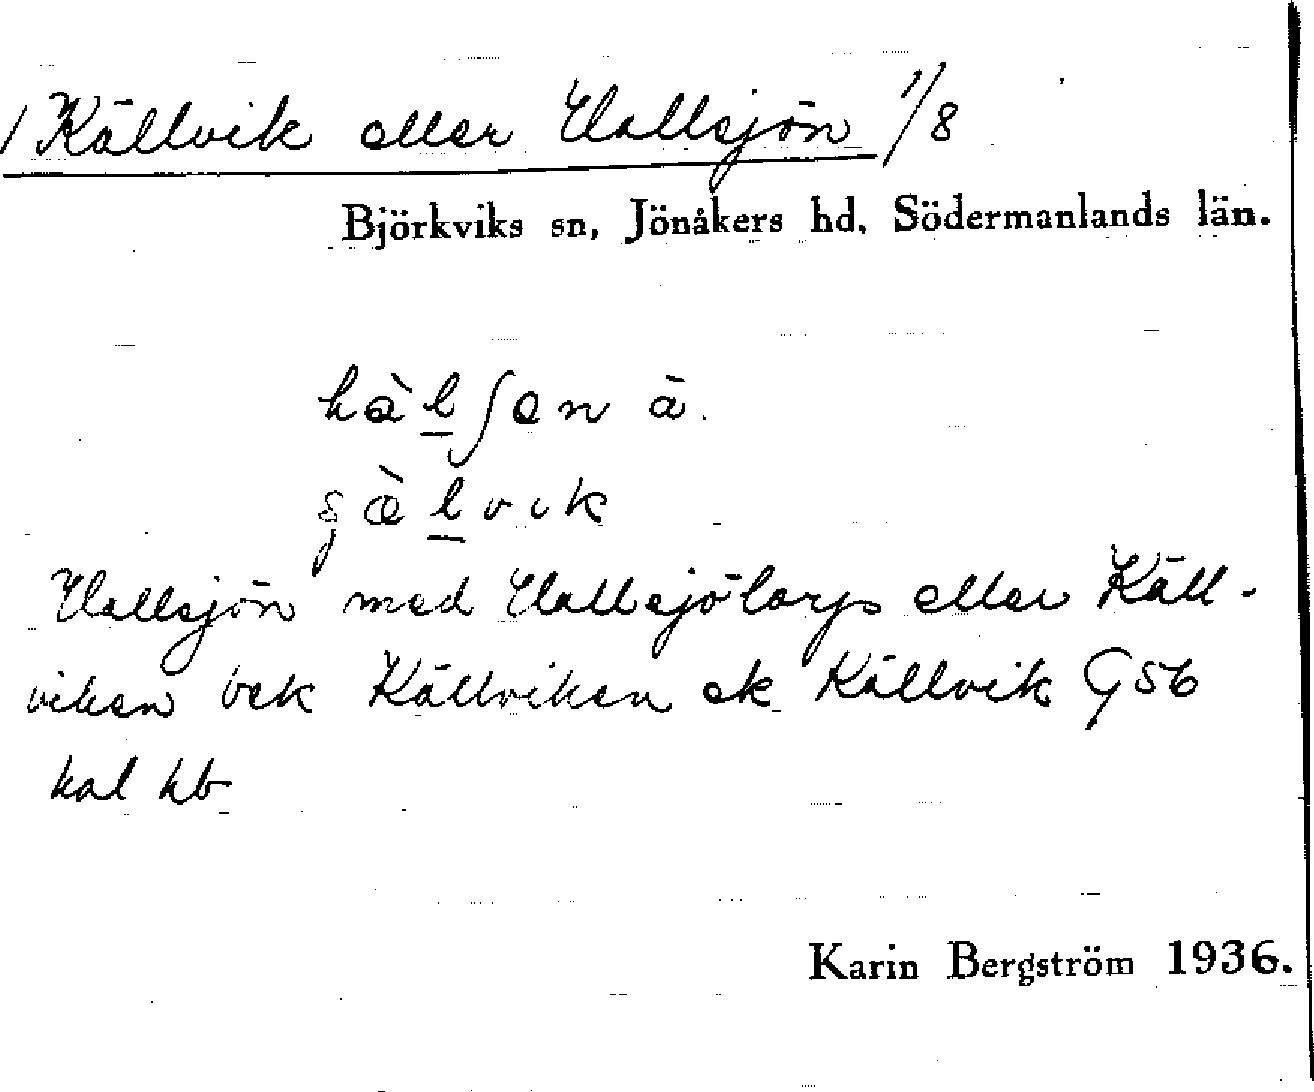 / Källvik eller Hallsjön 1/8
Björkviks sn, Jönåkers hd, Södermanlands län.
hàlʃən ä.
ʂæ̀lvik
Hallsjön med Hallsjötorp eller Käll-
viken bek Källviken ek Källvik G56
kal hb
Karin Bergström 1936.